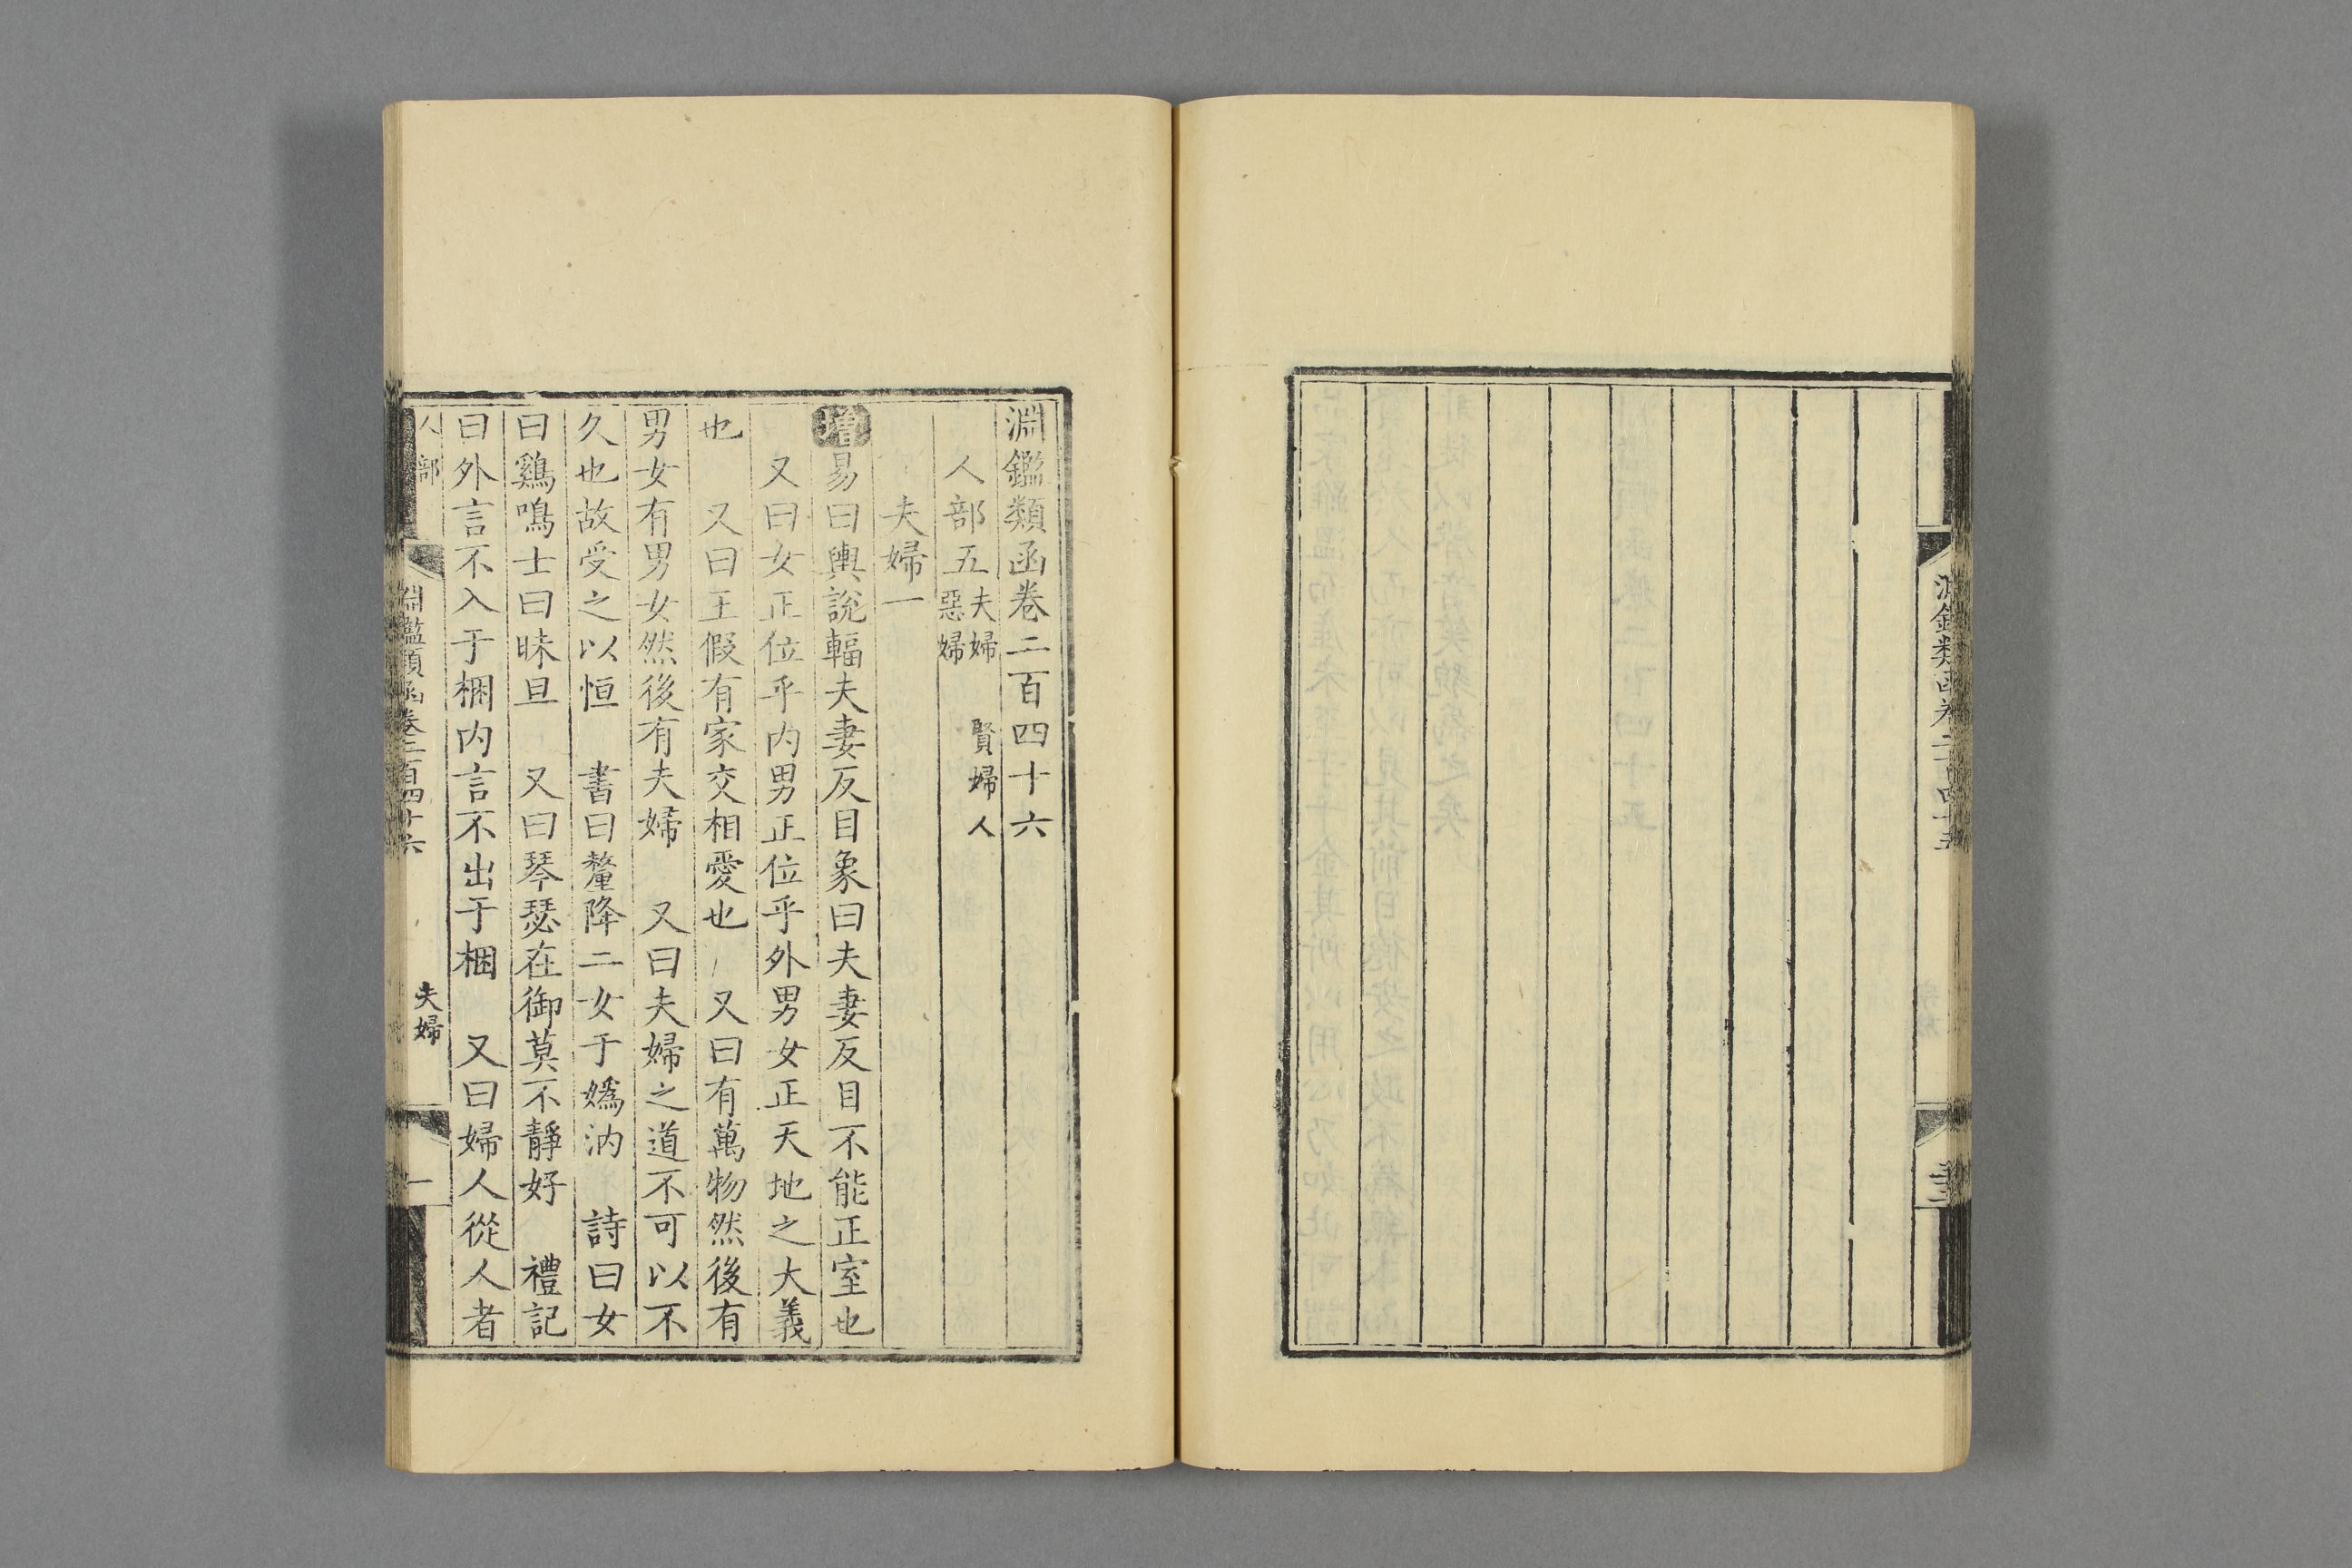 淵鑑類函卷二百四十六
人部五 夫婦 賢婦人
惡婦
夫婦一
增易曰輿說輻夫妻反目象曰夫妻反目不能正室也
又曰女正位乎内男正位乎外男女正天地之大義
也 又曰王假有家交相愛也 又曰有萬物然後有
男女有男女然後有夫婦 又曰夫婦之道不可以不
久也故受之以恒 書曰釐降二女于嬀汭 詩曰女
曰鷄鳴士曰昧旦 又曰琴瑟在御莫不靜好 禮記
曰外言不入于梱内言不出于梱 又曰婦人從人者
人部 淵鑑類函卷二百四十六 夫婦 一